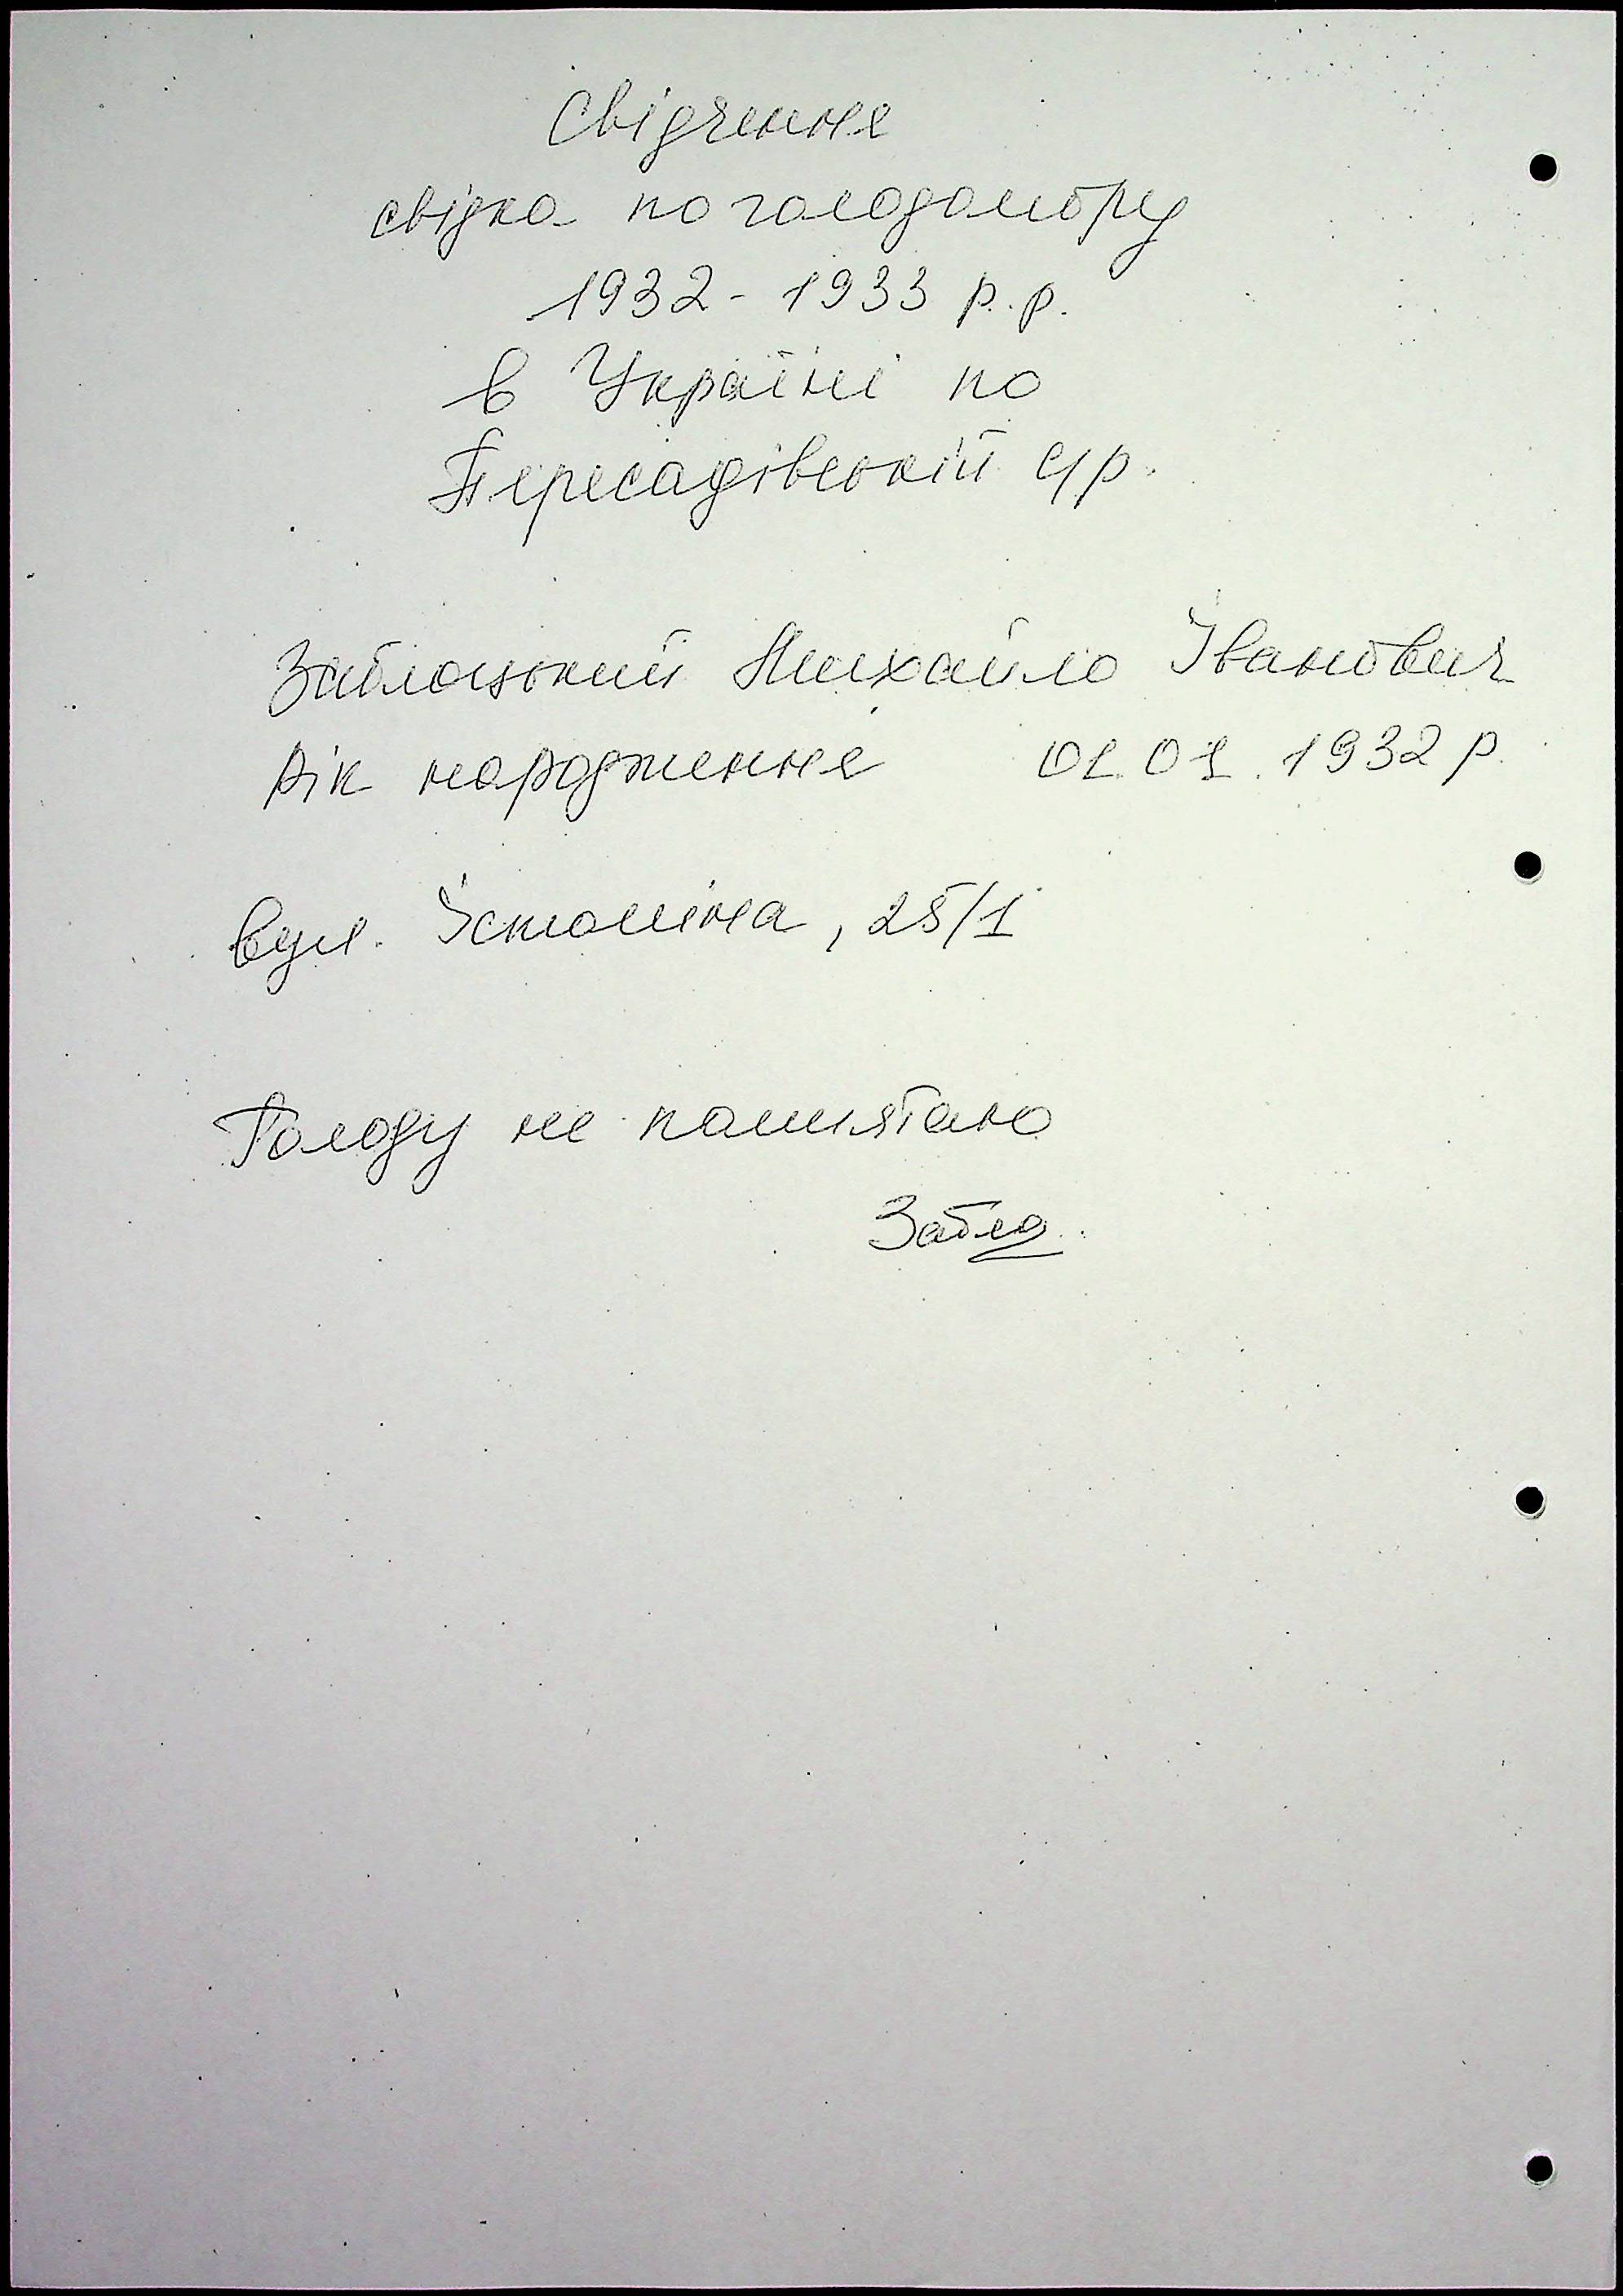 Свідчення
свідка по голодомору
1932 - 1933 р.р.
в Україні по
Пересадівській с/р.
Заблоцький Михайло Іванович
Рік народження 01.01.1932 р.
вул. Істоміна, 25/1
Голоду не памятаю